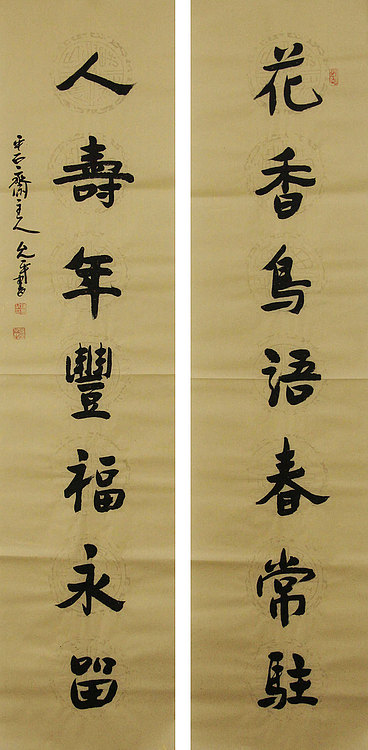 花香鳥語春常駐
人壽年豐福永留
齋主人